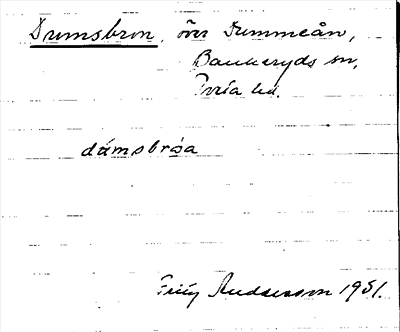 Dumsbron, över Dummeån,
Bankeryds sn,
Tveta hd.
dåmsbrøa
Andersson 1951.